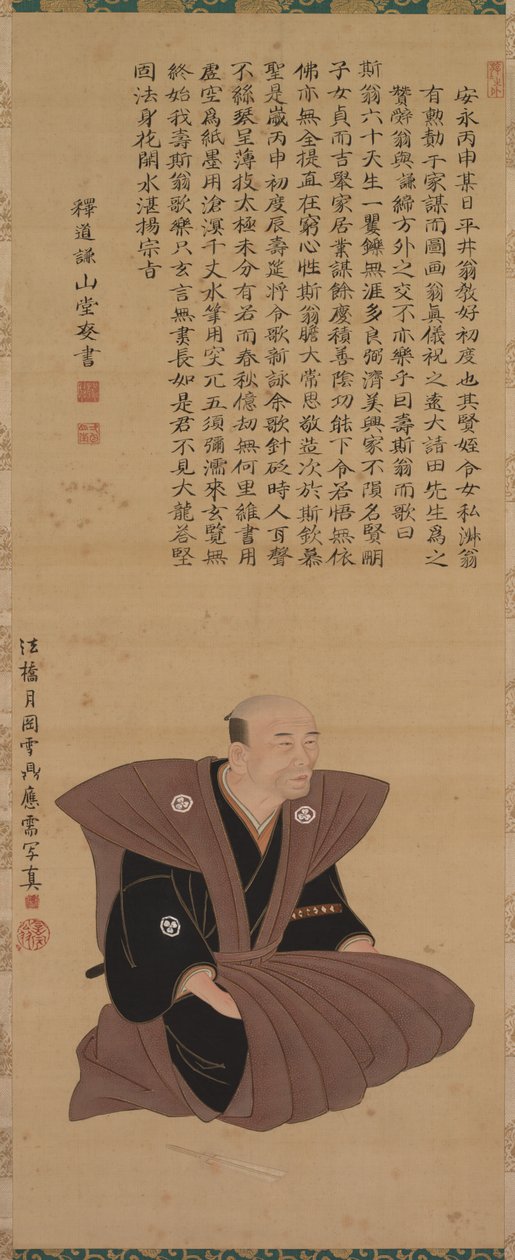 安永丙申某日平井翁敎好初度也其賢姪令女私淋翁
有勲于家謀而圖画翁眞儀祝之遠大請田先生爲之
贊辤翁與謙締方外之交不亦樂乎曰壽斯翁而歌曰
斯翁六十天生一矍鑠無涯多良弼濟美興家不隕名賢嗣
子女貞而吉舉家居業謀餘慶積善陰功能下令君悟無依
佛亦無全提直在窮心性斯翁膽大常思敬造次於斯欽慕
聖是歳丙申初度辰壽筵将令歌新詠余歌針砭時人耳聲
不絲琴呈薄技太極未分有若而春秋億劫無何里維書用
虚空爲紙墨用滄溟千丈水筆用突兀五須彌濡來玄覽無
終始我壽斯翁歌樂只玄言無長如是君不見大龍荅堅
固法身花開水湛揚宗旨
釋道謙山堂叜書
法橋月岡雪鼎應需写真